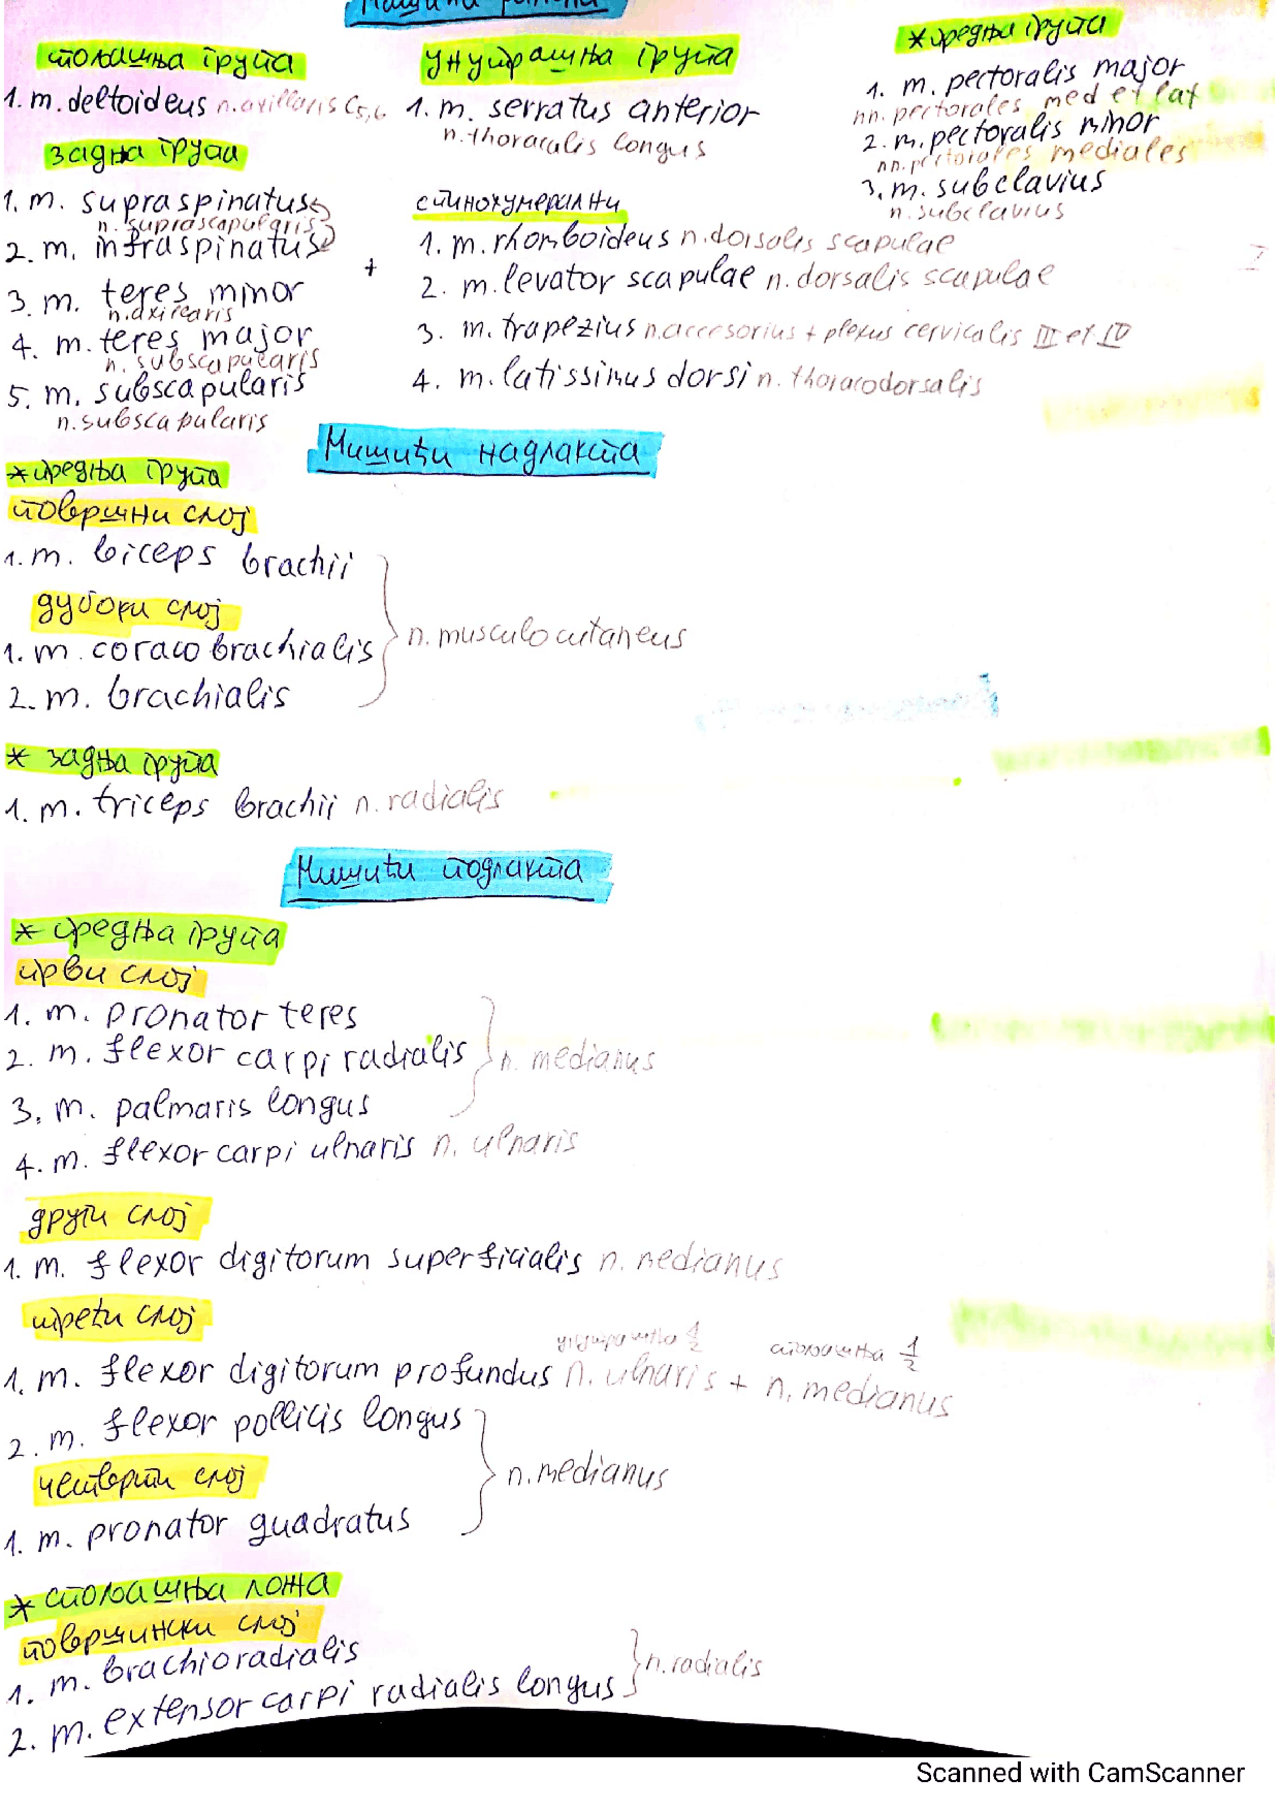 Мишићи рамена
спољашња група
1. m. deltoideus n. axillaris C5,6
задња група
1. m. supraspinatus
n. suprascapularis
2. m. infraspinatus
3. m. teres minor
n. axilearis
4. m. teres major
n. subscapularis
5. m. subscapularis
n. subscapularis
унутрашња група
1. m. serratus anterior
n. thoracalis longus
+
спинохумерални
1. m. rhomboideus n. dorsalis scapulae
2. m. levator scapulae n. dorsalis scapulae
3. m. trapezius n. accesorius + plexus cervicalis III et IV
4. m. latissimus dorsi n. thoracodorsalis
* предња група
1. m. pectoralis major
nn. pectorales med et lat
2. m. pectoralis minor
nn. pectorales mediales
3. m. subclavius
n. subclavius
Мишићи надлакта
* предња група
површни слој
1. m. biceps brachii
дубоки слој
1. m. coraco brachialis
2. m. brachialis
n. musculocutaneus
* задња група
1. m. triceps brachii n. radialis
Мишићи подлакта
* предња група
први слој
1. m. pronator teres
2. m. flexor carpi radialis
3. m. palmaris longus
n. medianus
4. m. flexor carpi ulnaris n. ulnaris
други слој
1. m. flexor digitorum superficialis n. medianus
трећи слој
унутрашња 1/2 спољашња 1/2
1. m. flexor digitorum profundus n. ulnaris + n. medianus
2. m. flexor pollicis longus
четврти слој
1. m. pronator quadratus
n. medianus
* спољашња ложа
површински слој
1. m. brachioradialis
2. m. extensor carpi radialis longus
n. radialis
Scanned with CamScanner